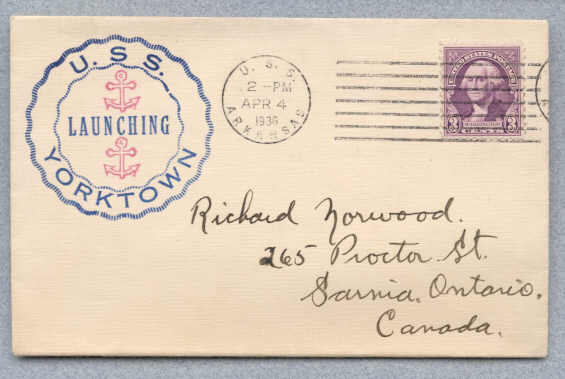 U. S. S.
LAUNCHING
YORKTOWN
U. S. S.
2 - PM
APR 4
1936
ARKANSAS
UNITED STATES POSTAGE
3 WASHINGTON 3
CENTS
Richard Norwood.
265 Proctor St.
Sarnia, Ontario.
Canada.